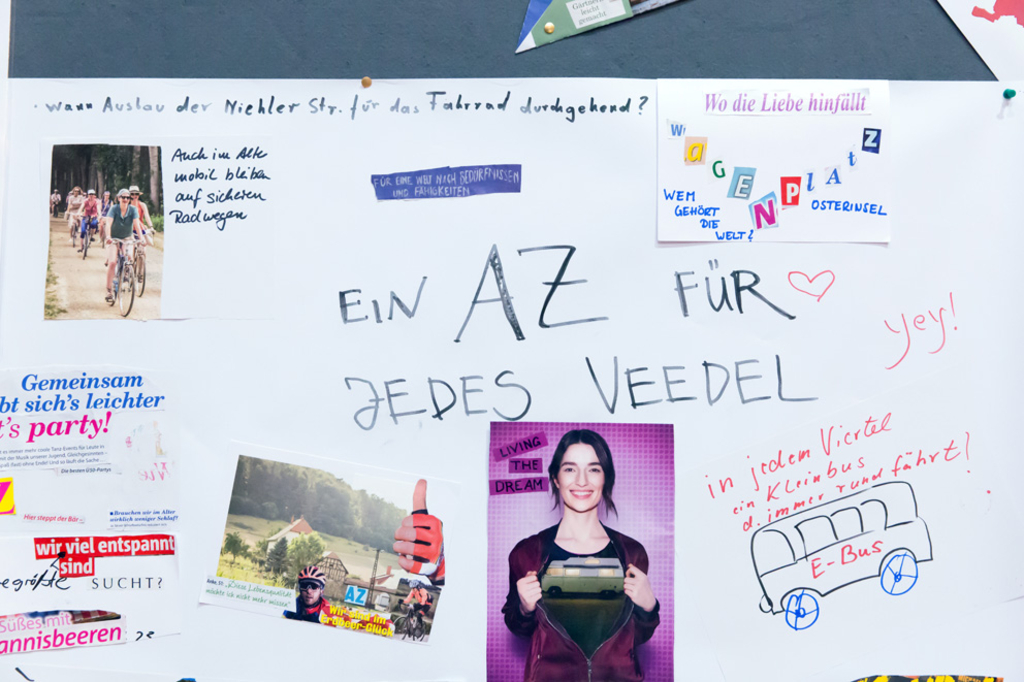 Gärtner
leicht
gemacht.
. wann Ausbau der Niehler Str. für das Fahrrad durchgehend?
Auch im Alter
mobil bleiben
auf sicheren
Radwegen
FÜR EINE WELT NACH BEDÜRFNISSEN
UND FÄHIGKEITEN
Wo die Liebe hinfällt
WaGENPlAtZ
WEM
GEHÖRT
DIE
WELT?
OSTERINSEL
EIN AZ FÜR
JEDES VEEDEL
yey!
Gemeinsam
bt sich's leichter
t's party!
Die besten Ü50-Partys
Hier steppt der Bär
Brauchen wir im Alter
wirklich weniger Schlaf?
wir viel entspannt
sind
egrößte SUCHT?
Süßes mit
annisbeeren
„Diese Lebensqualität
möchte ich nicht mehr missen"
AZ
Wir sind im
Erdbeer-Glück
LIVING
THE
DREAM
in jedem Viertel
ein Kleinbus
d. immer rund fährt!
E-Bus